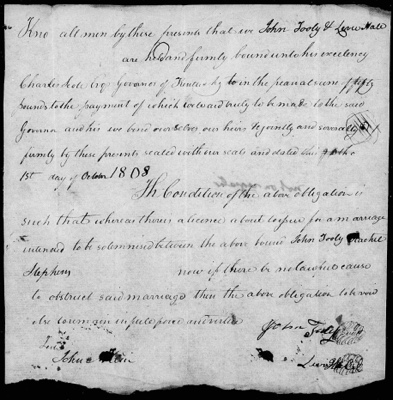 Kno all men by these presents that we John Tooly & Lewis Hale
are held and firmly bound unto his excelency
Charles Scott Esq Govenor of Kentucky in the peanal sum of fifty
pounds to the payment of which we do truly to be made to the said
Govenor and his we bind ourselves our heirs &c jointly and severally
firmly by these presents sealed with our seals and dated this
1st day of October 1808
Th Condition of the above obligation is
such that whereas there is a licence about to issue for a marriage
intended to be solemnised between the above bound John Tooly & Rachel
Stephens now if there be no lawful cause
to obstruct said marriage then the above obligation to be void
else to remain in full force and virtue
John Tooly
Teste
John Lewis Hale